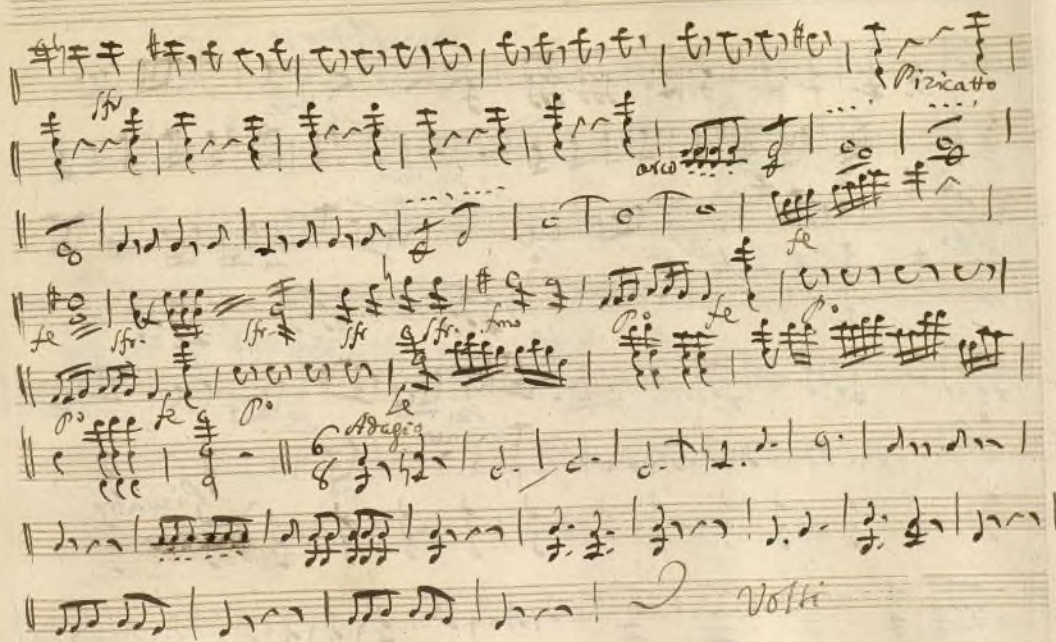 sfr Pizicatto
arco
fe
fe sfr. sfr. sfr sfr. fmo Po fe Po
Po fe Po fe
6 8 Adagio
Volti